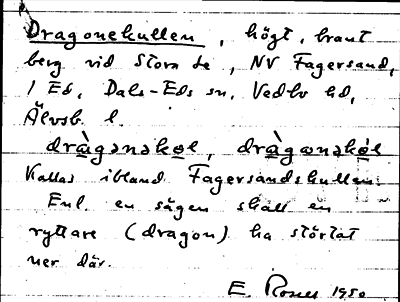 Dragonekullen, högt, brant
berg vid Stora Le, NV Fagersand,
i Ed, Dals-Eds sn, Vedbo hd,
Älvsb. l.
dràgɷnəkɵl, dràgɷnəkɵ̀l
Kallas ibland Fagersandskullen.
Enl. en sägen skall en
ryttare (dragon) ha störtat
ner där.
E. 1950